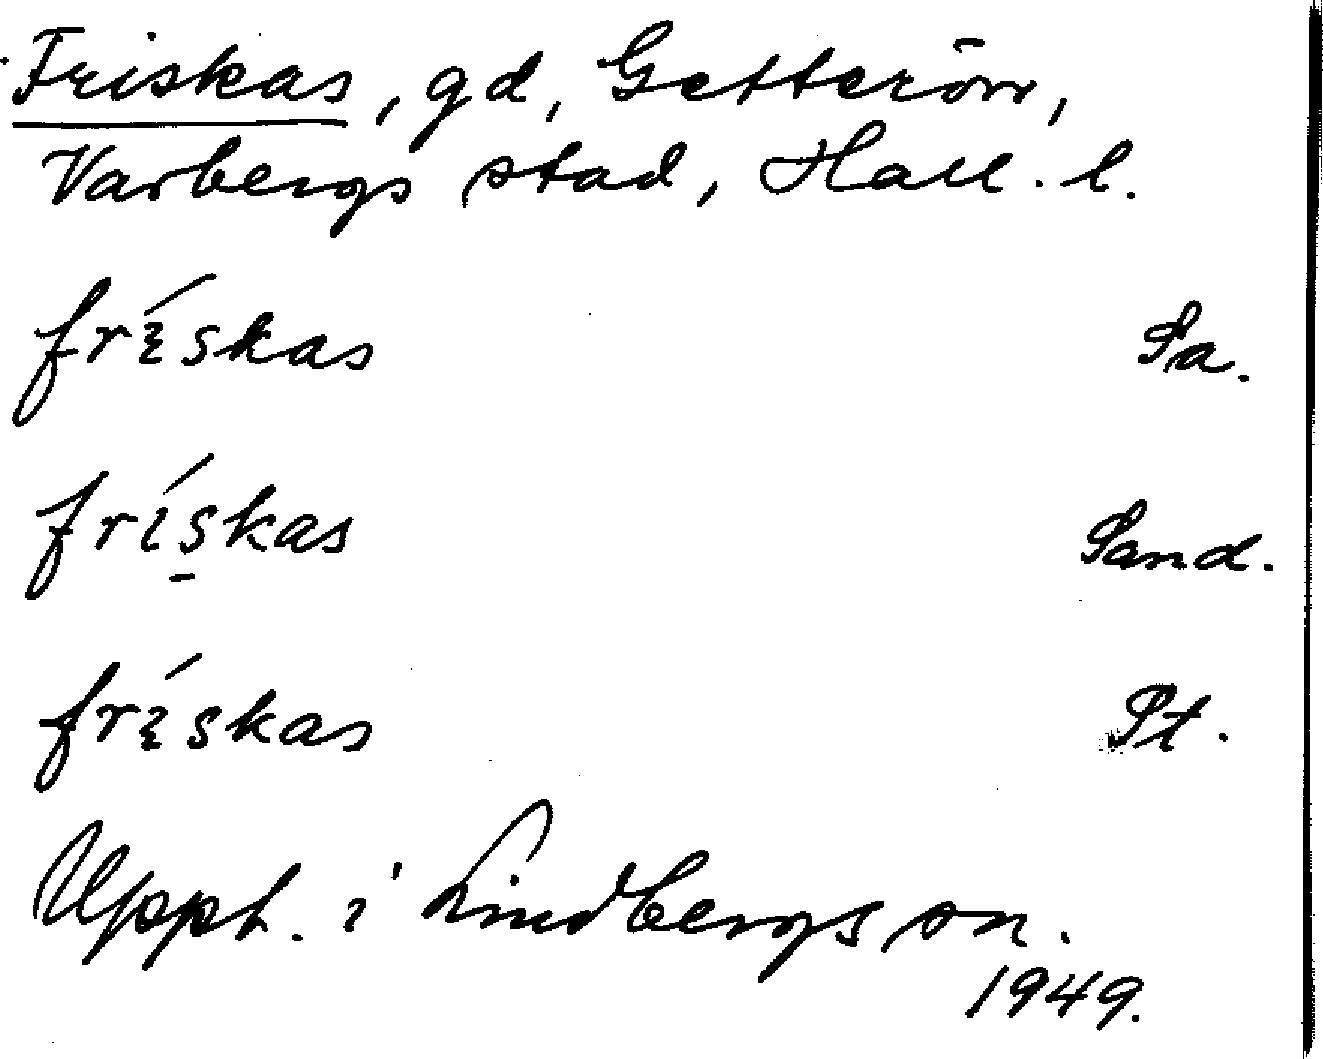 Friskas, gd, Getterön,
Varbergs stad, Hall. l.
frískas Sa.
frís̱kas Sand.
frískas Pt.
Upph. i Lindbergs sn.
1949.